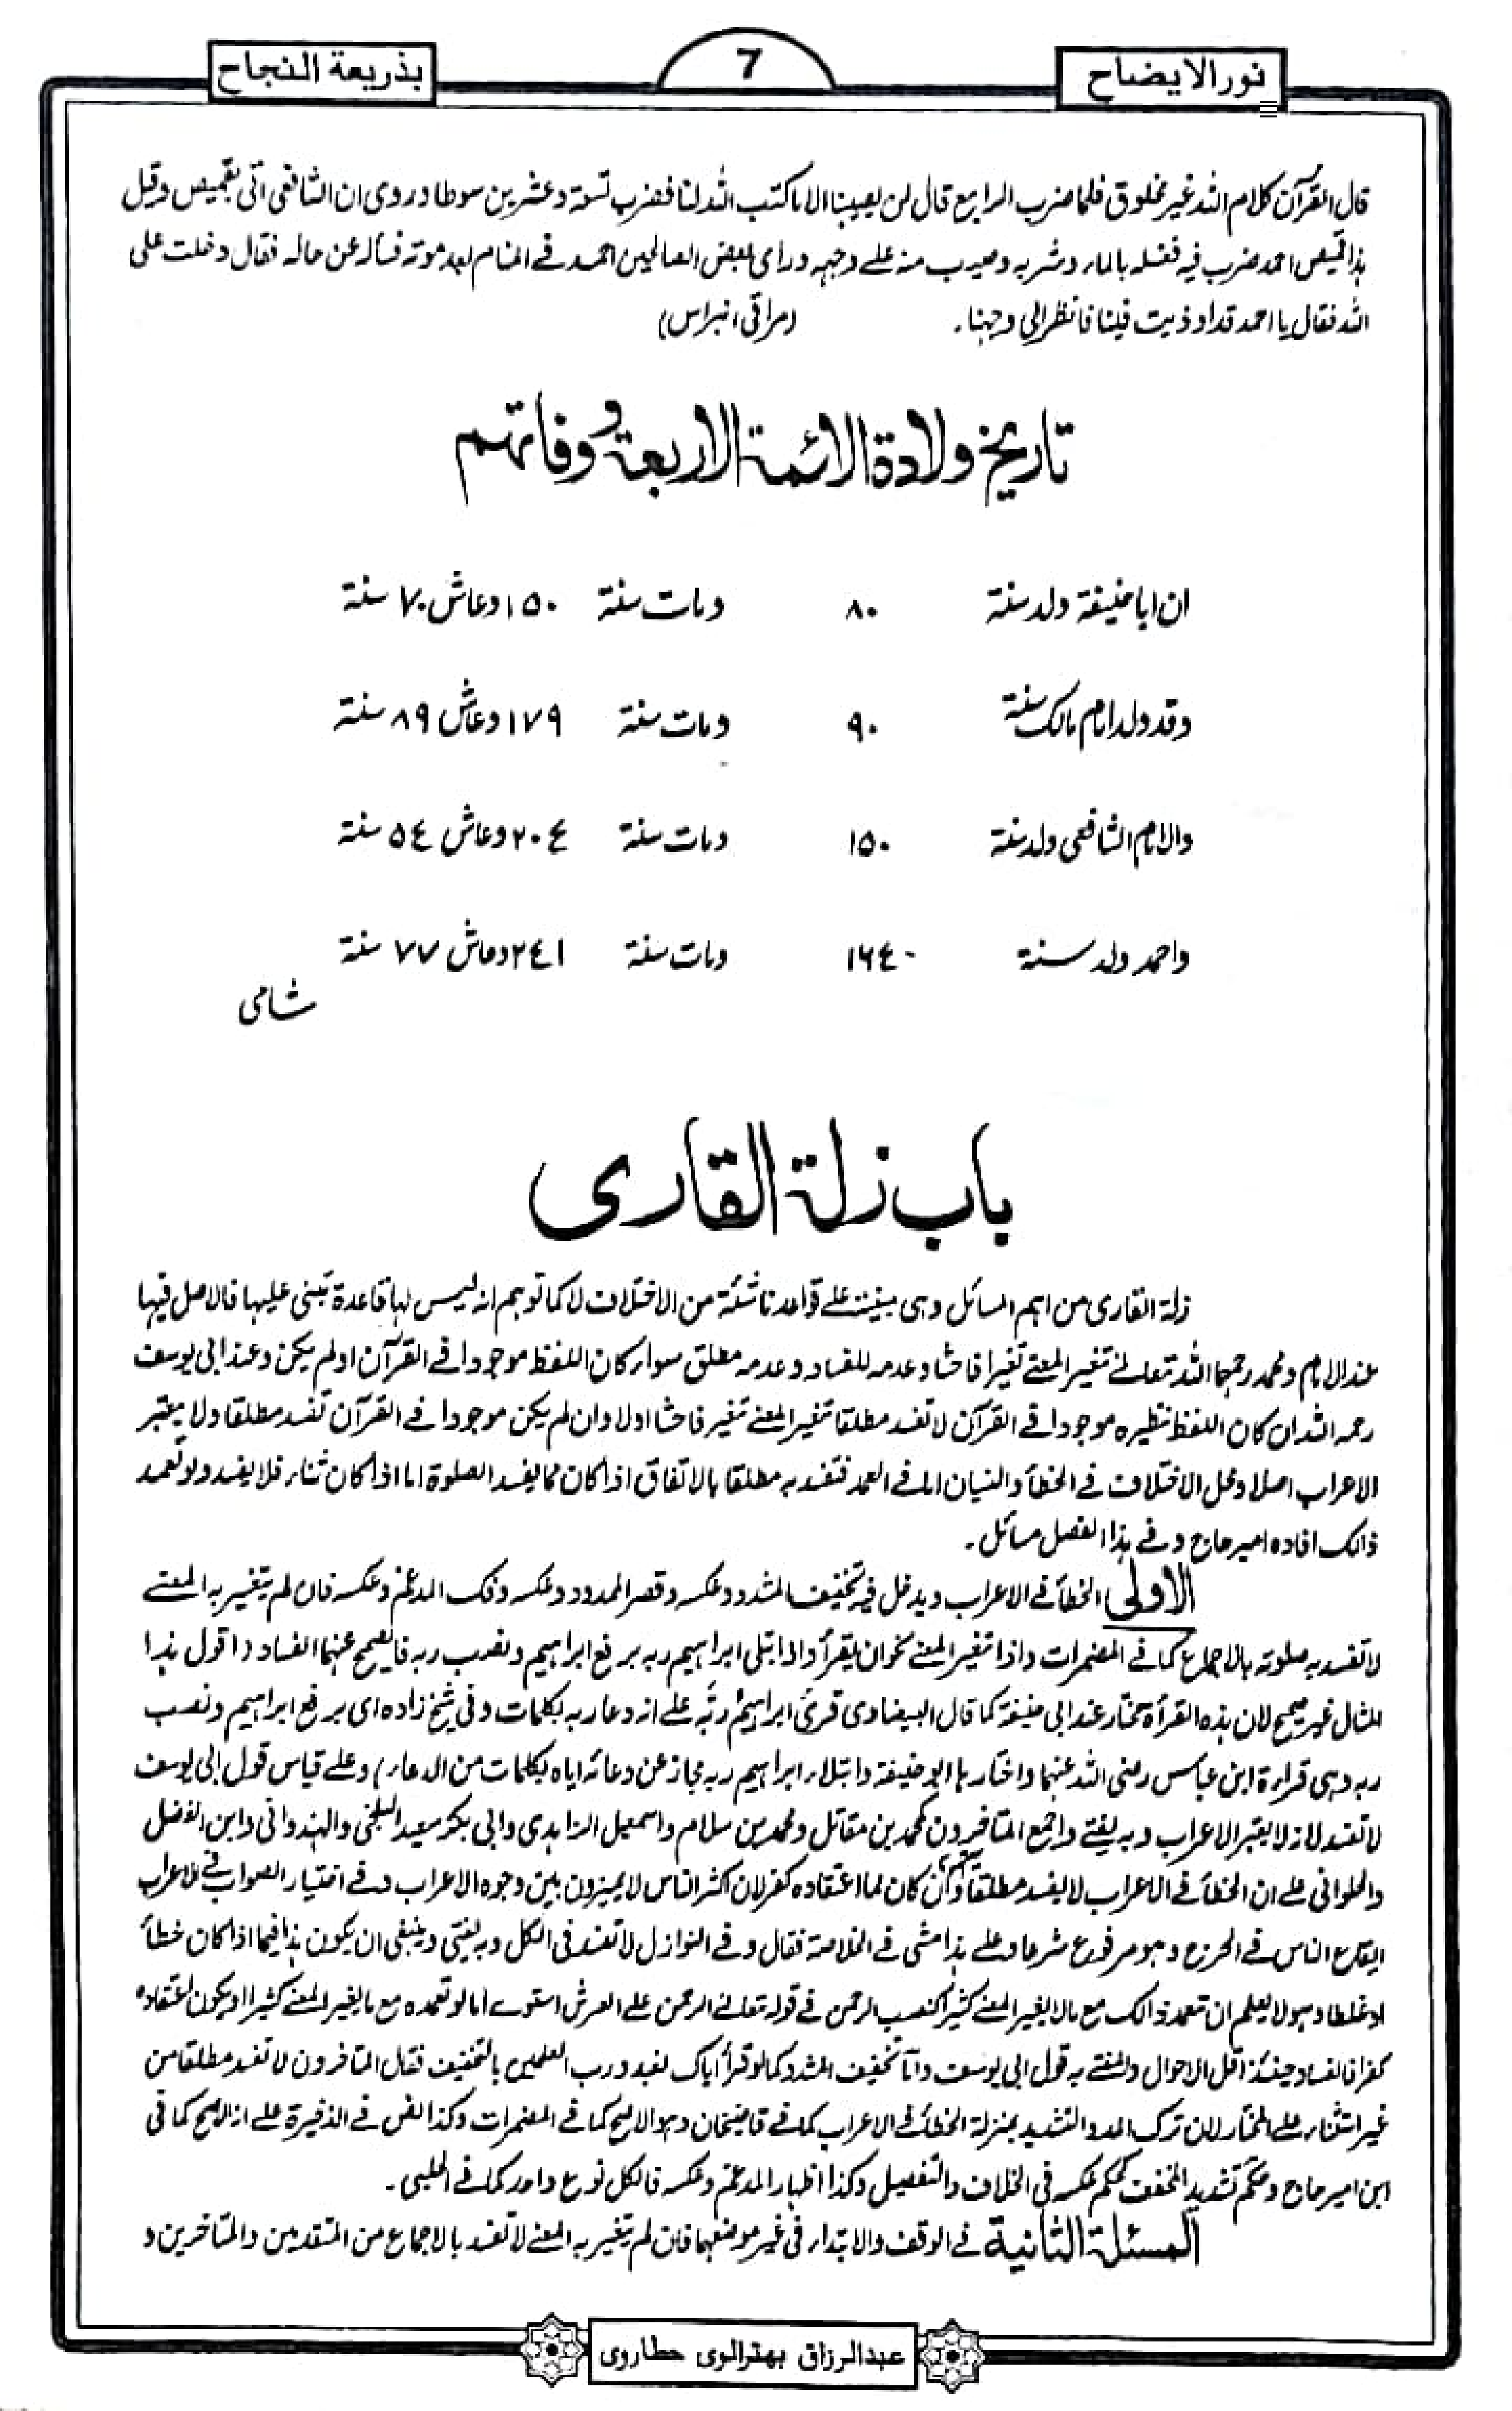 نور الايضاح
7
بذريعة النجاح
قال القرآن كلام الله غير مخلوق فلما ضرب الرابع قال لن يصيبنا الا ما كتب الله لنا فضرب تسعة وعشرين سوطا وروى ان الشافعى اتى بقميص وقيل
هذا قميص احمد ضرب فيه فغسله بالماء وشربه وصب منه على وجهه وراى بعض الصالحين احمد فى المنام بعد موته فسأله عن حاله فقال دخلت على
الله فقال يا احمد قد اوذيت فينا فانظر الى وجهنا۔ (مراقى، نبراس)
تاريخ ولادة الائمة الاربعة ووفاتهم
ان ابا حنيفة ولد سنة ٨٠ ومات سنة ١٥٠ وعاش ٧٠ سنة
وقد ولد امام مالك سنة ٩٠ ومات سنة ١٧٩ وعاش ٨٩ سنة
والامام الشافعى ولد سنة ١٥٠ ومات سنة ٢٠٤ وعاش ٥٤ سنة
واحمد ولد سنة ١٦٤٠ ومات سنة ٢٤١ وعاش ٧٧ سنة
شامى
باب زلة القارى
زلة القارى من اهم المسائل وهى مبنية على قواعد ناشئة من الاختلاف لا كما توهم انه ليس لها قاعدة تبنى عليها فالاصل فيها
عند الامام ومحمد رحمهما الله تعالى تغير المعنى تغيرا فاحشا وعدمه للفساد وعدمه مطلق سواء كان اللفظ موجودا فى القرآن او لم يكن وعند ابى يوسف
رحمه الله ان كان اللفظ نظيره موجودا فى القرآن لا تفسد مطلقا تغير المعنى تغير فاحشا اولا وان لم يكن موجودا فى القرآن تفسد مطلقا ولا يعتبر
الاعراب اصلا ومحل الاختلاف فى الخطأ والنسيان اما فى العمد فتفسد به مطلقا بالاتفاق اذا كان مما يفسد الصلوة اما اذا كان ثناء فلا يفسد ولو تعمد
ذالك افاده امير حاج وفى هذا الفصل مسائل۔
الاولى الخطأ فى الاعراب ويدخل فيه تخفيف المشدد وعكسه وقصر الممدود وعكسه وفك المدغم وعكسه فان لم يتغير به المعنى
لا تفسد به صلوته بالاجماع كما فى المضمرات واذا تغير المعنى نحو ان يقرأ واذ ابتلى ابراهيم ربه برفع ابراهيم ونصب ربه فالصحيح عنهما الفساد (اقول هذا
المثال غير صحيح لان هذه القرأة مختار عند ابى حنيفة كما قال البيضاوى قرئ ابراهيمُ ربَّه على انه دعا ربه بكلمات وفى شيخ زاده اى برفع ابراهيم ونصب
ربه وهى قراءة ابن عباس رضى الله عنهما واختارها ابو حنيفة وابتلاء ابراهيم ربه مجاز عن دعائه اياه بكلمات من الدعاء) وعلى قياس قول ابى يوسف
لا تفسد لانه لا يعتبر الاعراب وبه يفتى واجمع المتأخرون كمحمد بن مقاتل ومحمد بن سلام واسمعيل الزاهدى وابى بكر سعيد البلخى والهندوانى وابن الفضل
والحلوانى على ان الخطأ فى الاعراب لا يفسد مطلقا وان كان مما اعتقاده كفر لان اكثر الناس لا يميزون بين وجوه الاعراب وفى اختيار الصواب فى الاعراب
ايقاع الناس فى الحرج وهو مرفوع شرعا وعلى هذا مشى فى الخلاصة فقال وفى النوازل لا تفسد فى الكل وبه يفتى وينبغى ان يكون هذا فيما اذا كان خطأ
او غلطا وهو لا يعلم ان تعمد ذالك مع ما لا يغير المعنى كثيرا كنصب الرحمن فى قوله تعالى الرحمن على العرش استوى اما لو تعمده مع ما يغير المعنى كثيرا او يكون اعتقاده
كفرا فالفساد حينئذ اقل الاحوال والمفتى به قول ابى يوسف واما تخفيف المشدد كما لو قرأ اياك نعبد ورب العلمين بالتخفيف فقال المتأخرون لا تفسد مطلقا من
غير استثناء على المختار لان ترك المد والتشديد بمنزلة الخطأ فى الاعراب كما فى قاضيخان وهو الاصح كما فى المضمرات وكذا نص فى الذخيرة على انه الاصح كما فى
ابن امير حاج وحكم تشديد المخفف كحكم عكسه فى الخلاف والتفصيل وكذا اظهار المدغم وعكسه فالكل نوع واحد كما فى الحلبى۔
المسئلة الثانية فى الوقف والابتداء فى غير موضعهما فان لم يتغير به المعنى لا تفسد بالاجماع من المتقدمين والمتاخرين و
عبدالرزاق بهترالوى حطاروى